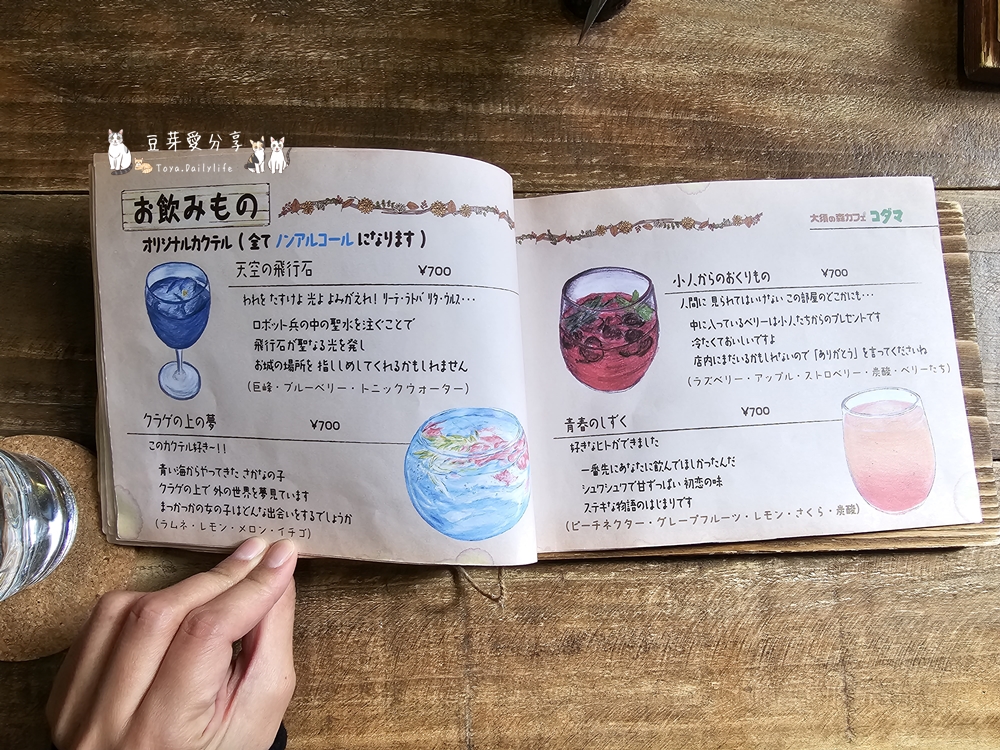 豆芽愛分享
Toya.Dailylife
お飲みもの
オリジナルカクテル(全てノンアルコールになります)
天空の飛行石 ¥700
われを たすけよ 光よ よみがえれ! リーテ・ラトバリタ・ウルス・・・
ロボット兵の中の聖水を注ぐことで
飛行石が聖なる光を発し
お城の場所を 指ししめしてくれるかもしれません
(巨峰・ブルーベリー・トニックウォーター)
クラゲの上の夢 ¥700
このカクテル好き〜!!
青い海からやってきた さかなの子
クラゲの上で 外の世界を夢見ています
まっかっかの女の子はどんな出会いをするでしょうか
(ラムネ・レモン・メロン・イチゴ)
大須の森カフェ コダマ
小人からのおくりもの ¥700
人間に 見られてはいけない この部屋のどこかにも・・・
中に入っているベリーは小人たちからのプレゼントです
冷たくておいしいですよ
店内にまだいるかもしれないので「ありがとう」を言ってくださいね
(ラズベリー・アップル・ストロベリー・炭酸・ベリーたち)
青春のしずく ¥700
好きなヒトができました
一番先にあなたに飲んでほしかったんだ
シュワシュワで甘ずっぱい 初恋の味
ステキな物語のはじまりです
(ピーチネクター・グレープフルーツ・レモン・さくら・炭酸)